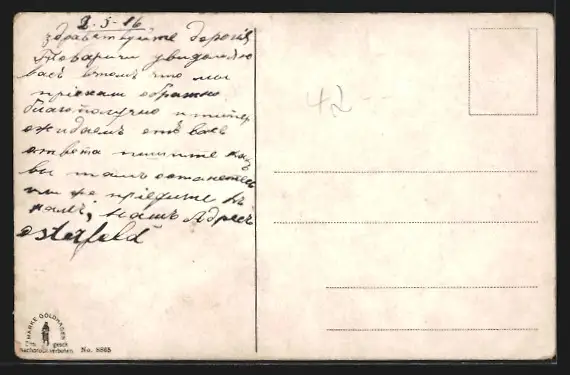 2-5-16
здравствуйте дорогія
Товарищи увидомляю
васъ втомъ что мы
пріехали обратно
благополучно итеперь
ожидаемъ отъ васъ
ответа пишите какъ
вы тамъ останетесь
или же пріедите къ
намъ, нашъ Адресъ
Osterfeld
42
MARKE GOLDHASEN
gesch.
Nachdruck verboten. No. 8865